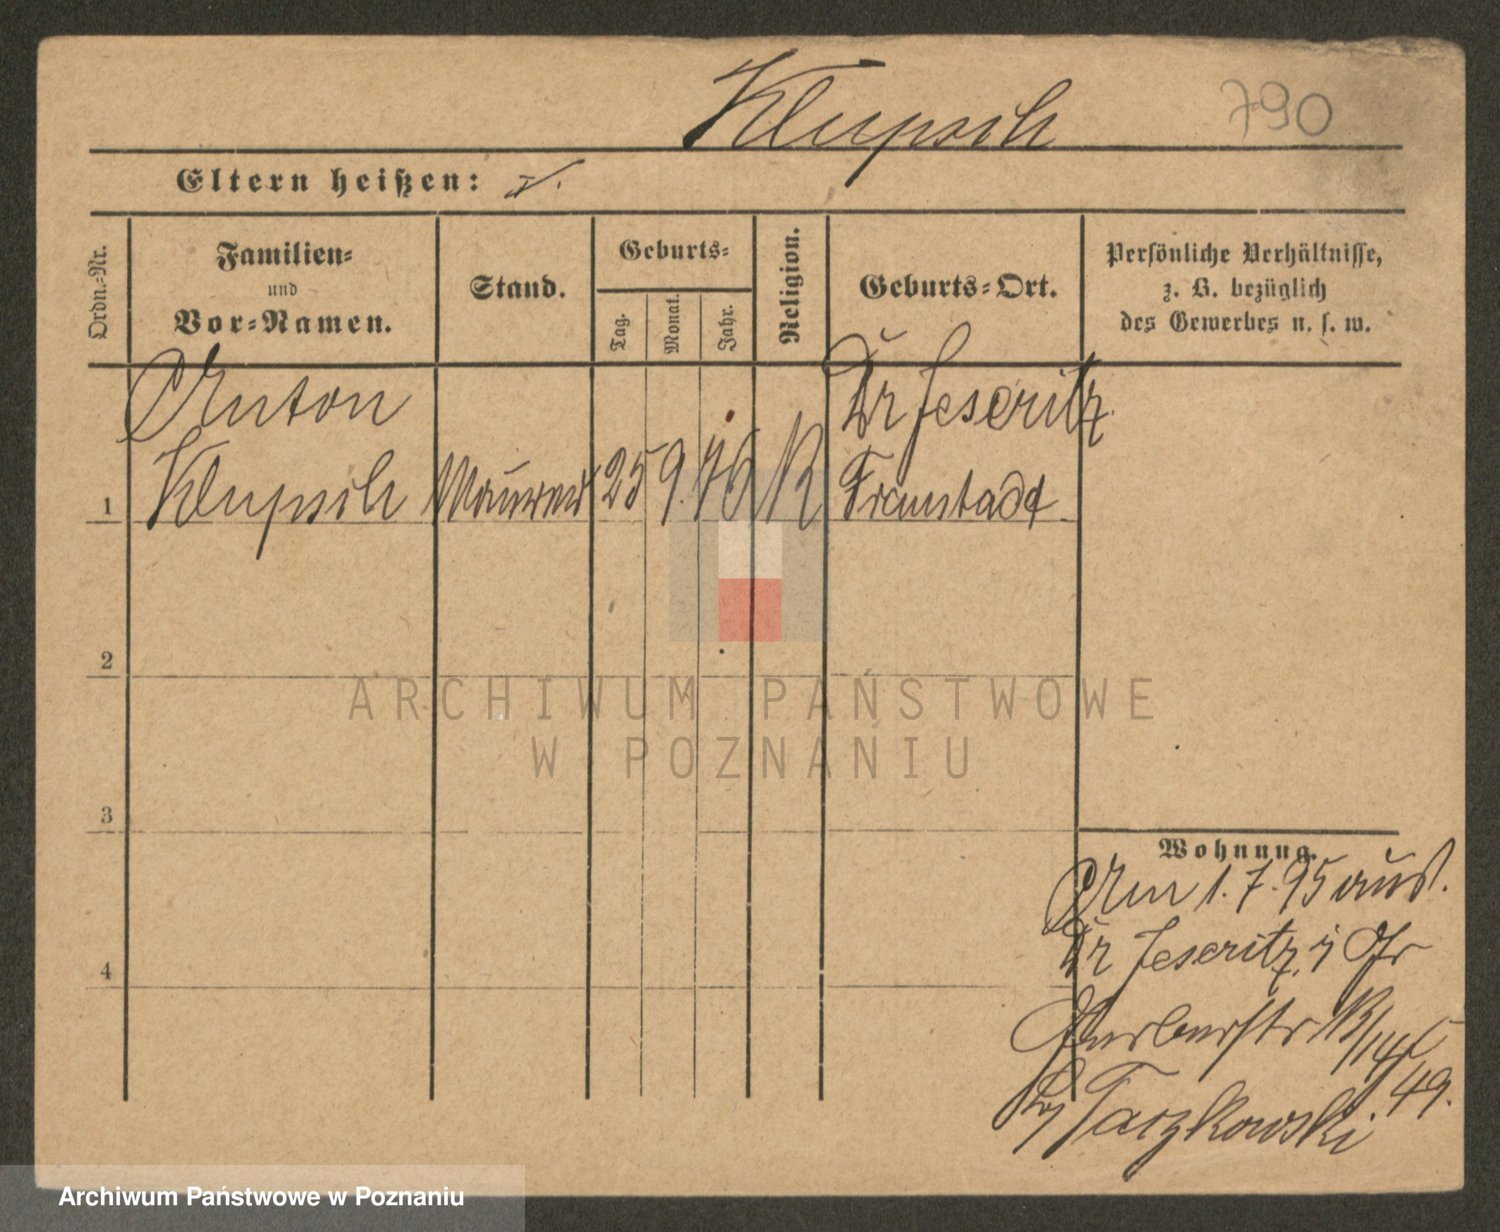 Klupsch
790
Eltern heißen: v.
Ordn.-Nr.
Familien-
und
Vor-Namen.
Stand.
Geburts-
Tag.
Monat.
Jahr.
Religion.
Geburts-Ort.
Persönliche Verhältnisse,
z. B. bezüglich
des Gewerbes u. s. w.
Anton Dr Jeseritz
1 Klupsch Maurer 25 9. 76 K Fraustadt
2
3
4
Wohnung.
Am 1. 7. 95 aus.
Dr Jeseritz
Gerberstr
Taczkowski 49.
ARCHIWUM PAŃSTWOWE
W POZNANIU
Archiwum Państwowe w Poznaniu